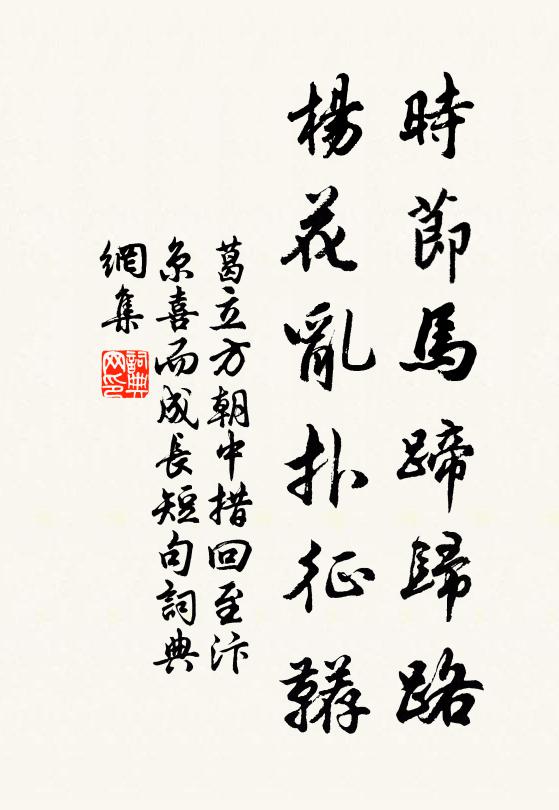 時節馬蹄歸路
楊花亂扑征韉
葛立方朝中措回至汴
京喜而成長短句詞典
網集
詞典
网印